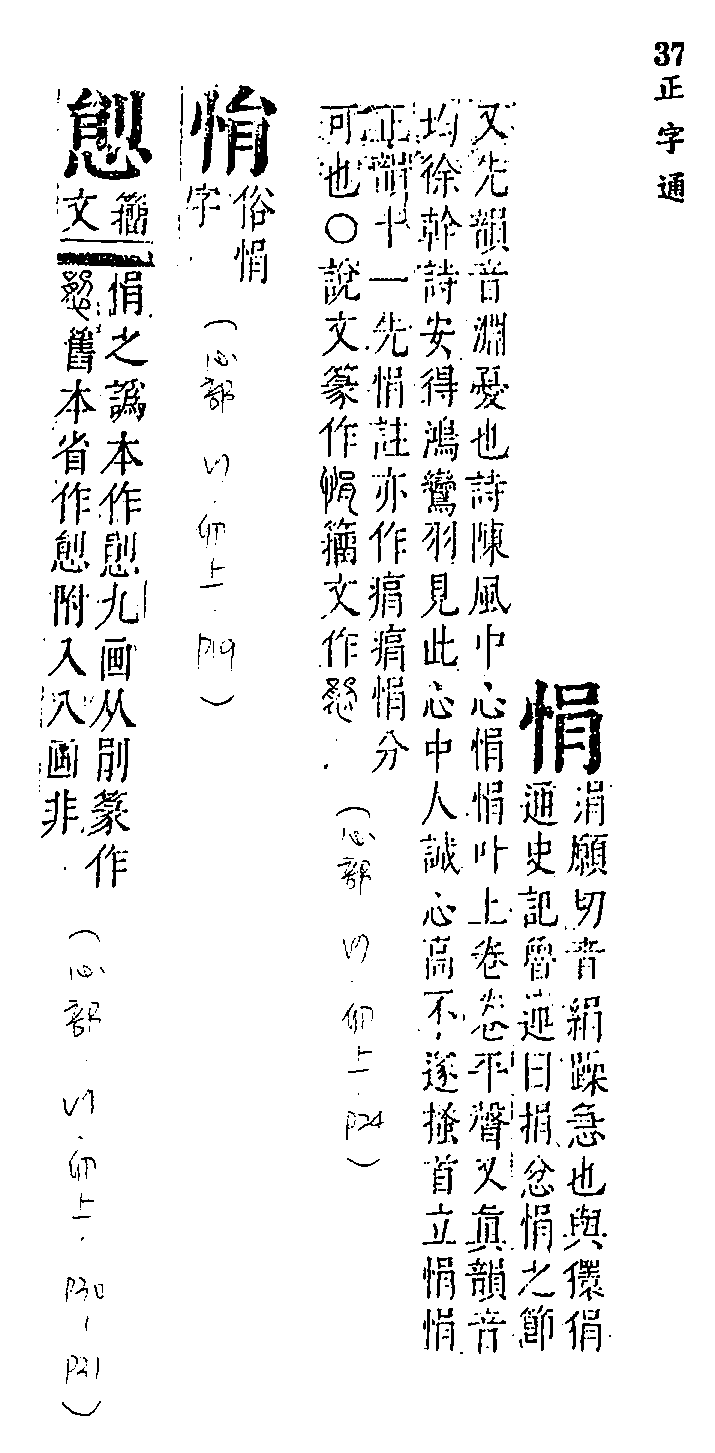 37 正字通
悁
涓願切音絹躁急也與儇狷
通史記魯連曰捐忿悁之節
又先韻音淵憂也詩陳風中心悁悁叶上卷卷平聲又眞韻音
均徐幹詩安得鴻鸞羽見此心中人誠心亮不遂搔首立悁悁
正韻十一先悁註亦作痟痟悁分
可也〇說文篆作悁籀文作
(心部 切・卯上・P24)
悄
俗悁
字
(心部 切・卯上・P19)
籀
文
悁之譌本作九画从剈篆作
舊本省作附入八画非
(心部・切・卯上・P30-P21)